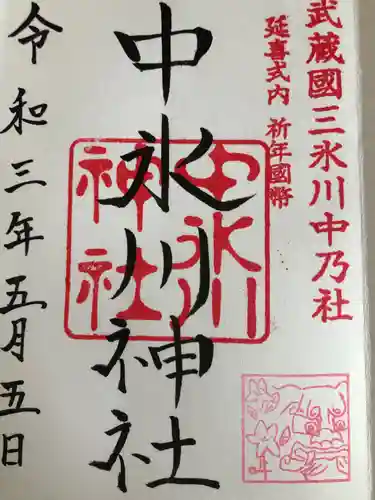 武蔵國三氷川中乃社
延喜式内 祈年國幣
中氷川神社
中氷川
神社
令和三年五月五日